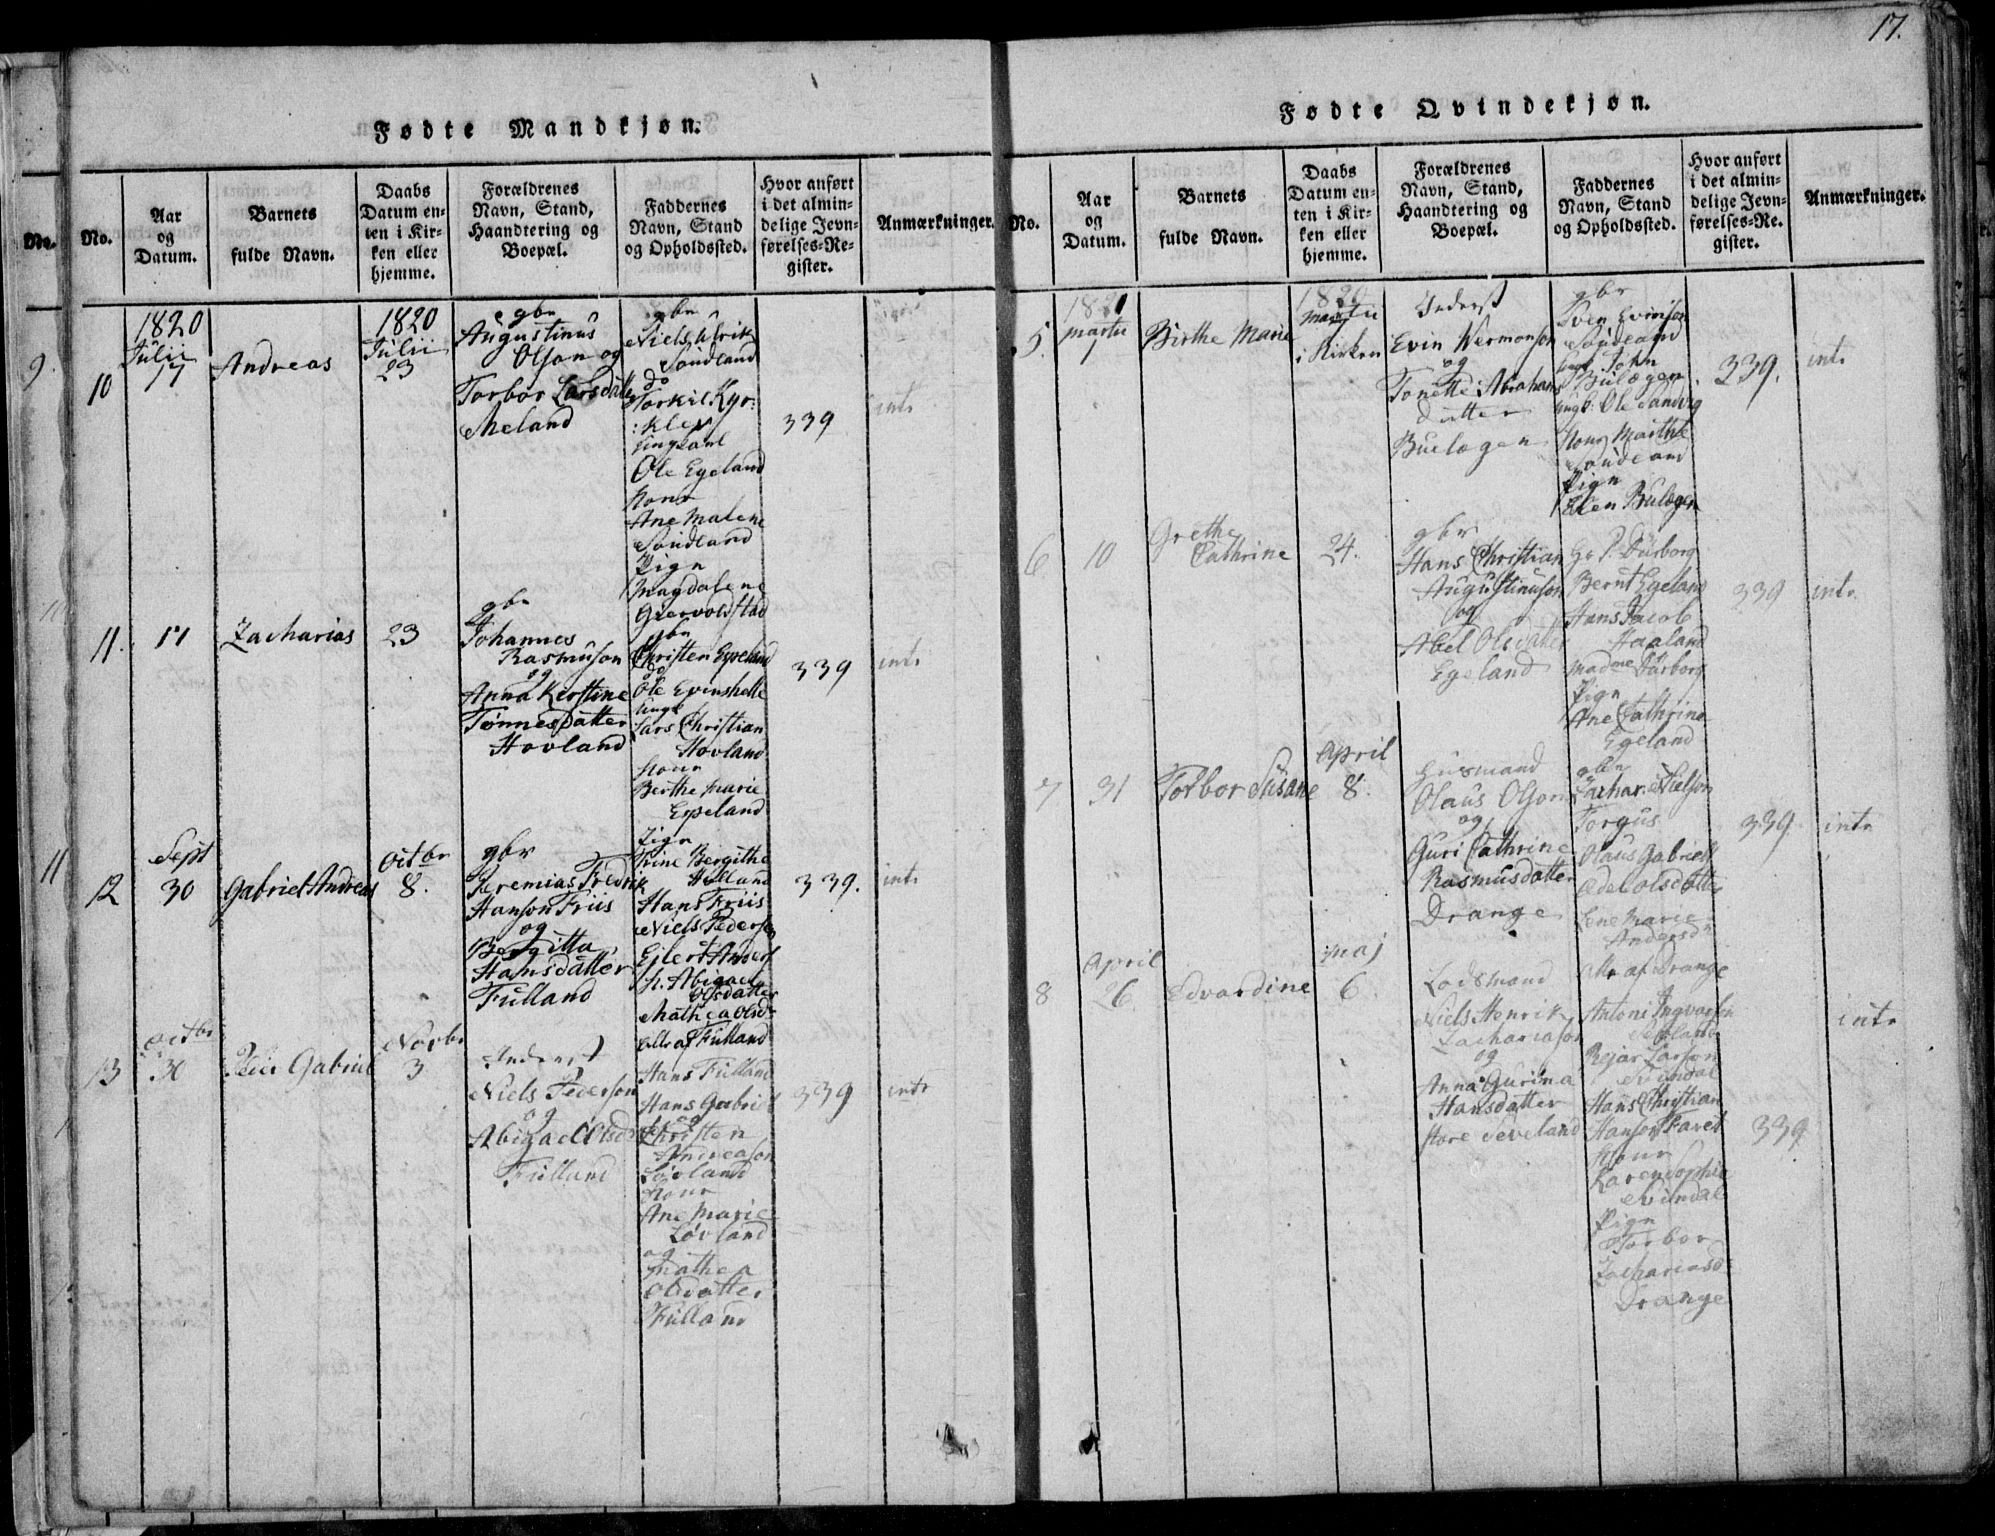 17.
Fødte Mandkjøn.
No.
No.
Aar
og
Datum.
Barnets
fulde Navn.
Daabs
Datum en-
ten i Kir-
ken eller
hjemme.
Forældrenes
Navn, Stand,
Haandtering og
Boepæl.
Faddernes
Navn, Stand
og Opholdssted.
Hvor anført
i det almin-
delige Jevn-
førelses-Re-
gister.
Anmærkninger.
10
1820
Julii
17
Andreas
1820
Julii
23
gbr
Augustinus
Olson og
Torbor Larsdatter
Meland
gbr
Niels Ulrik
Søndland
do
Torkil Kyr:
:klev
Ungkarl
Ole Egeland
Kone
Ane Malene
Søndland
Pign
Magdalene
Giervoldstad
339
intr
11.
17
Zacharias
23
gbr
Johannes
Rasmuson
og
Anna Kirstine
Tønnesdatter
Hovland
gbr
Christen Epeland
do
Ole Evenshelle
Ungk
Lars Christian
Hovland
Kone
Berthe Marie
Epeland
Pign
Trine Bergithe
339
intr
12
Sept
30
Gabriel Andreas
Octbr
8.
gbr
Jeremias Fredrik
Hanson Friis
og
Bergitta
Hansdatter
Fulland
Hans Friis
Niels Pederson
Ejlert Anders
Abigael
Olsdatter
Mathea Olsd
alle af Fulland
339.
intr
13
Octbr
30
Gabriel
Novbr
3
Inderst
Niels Pederson
og
Abigael Olsd
Fulland
Hans Fulland
Hans Gabriel
og
Christen
Andreason
Løvland
Kone
Ane Marie
Løvland
og
Mathea
Olsdatter
Fulland
339
intr
Fødte Qvindekjøn.
No.
Aar
og
Datum.
Barnets
fulde Navn.
Daabs
Datum en-
ten i Kir-
ken eller
hjemme.
Forældrenes
Navn, Stand,
Haandtering og
Boepæl.
Faddernes
Navn, Stand
og Opholdssted.
Hvor anført
i det almin-
delige Jevn-
førelses-Re-
gister.
Anmærkninger.
5.
martii
1
Birthe Marie
martii
i Kirken
Inderst
Evin Wermonson
og
Tonette Abrahams
datter
Buelægen
gbr
Sven Evinson
Søndland
Ungk John
Bulægen
Ungk: Ole Sandvig
Kone Marthe
Søndland
Pign
Elen Bulægen
339.
intr
6
10
Grethe
Cathrine
24.
gbr
Hans Christian
Augustinuson
og
Abel Olsdatter
Egeland
Hr P. Dürborg
Bernt Egeland
Hans Jacob
Haaland
Madme Dürborg
Pign
Ane Cathrine
Egeland
339
intr
7
31
Torbor Susane
April
8.
Huusmand
Olaus Olson
og
Guri Cathrine
Rasmusdatter
Drange
gbr
Zachar: Nielson
Olaus Gabriel
Adel Olsdatter
Lene Marie
Andersd
alle af Drange
339
intr
8
April
26
Edvardine
Maj
6.
Lodsmand
Niels Henrik
Zachariason
og
Anna Gurina
Hansdatter
store Seveland
Antoni Ingvarson
Rejar Larson
Svindal
Hans Christian
Hanson Faret
Kone
Karen Sophie
Svindal
Pign
Torbor
Zachariasd
Drange
339
intr